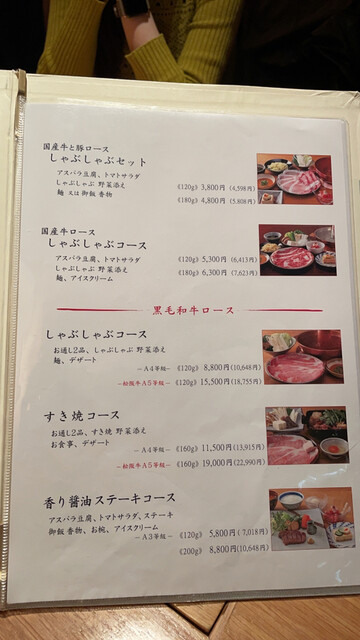 国産牛と豚ロース
しゃぶしゃぶセット
アスパラ豆腐、トマトサラダ
しゃぶしゃぶ 野菜添え
麺 又は 御飯 香物
《120g》 3,800円 (4,598円)
《180g》 4,800円 (5,808円)
国産牛ロース
しゃぶしゃぶコース
アスパラ豆腐、トマトサラダ
しゃぶしゃぶ 野菜添え
麺、アイスクリーム
《120g》 5,300円 (6,413円)
《180g》 6,300円 (7,623円)
黒毛和牛ロース
しゃぶしゃぶコース
お通し2品、しゃぶしゃぶ 野菜添え
麺、デザート
－A4等級－ 《120g》 8,800円 (10,648円)
－松阪牛A5等級－ 《120g》 15,500円 (18,755円)
すき焼コース
お通し2品、すき焼 野菜添え
お食事、デザート
－A4等級－ 《160g》 11,500円 (13,915円)
－松阪牛A5等級－ 《160g》 19,000円 (22,990円)
香り醤油ステーキコース
アスパラ豆腐、トマトサラダ、ステーキ
御飯 香物、お椀、アイスクリーム
－A3等級－ 《120g》 5,800円 (7,018円)
《200g》 8,800円 (10,648円)